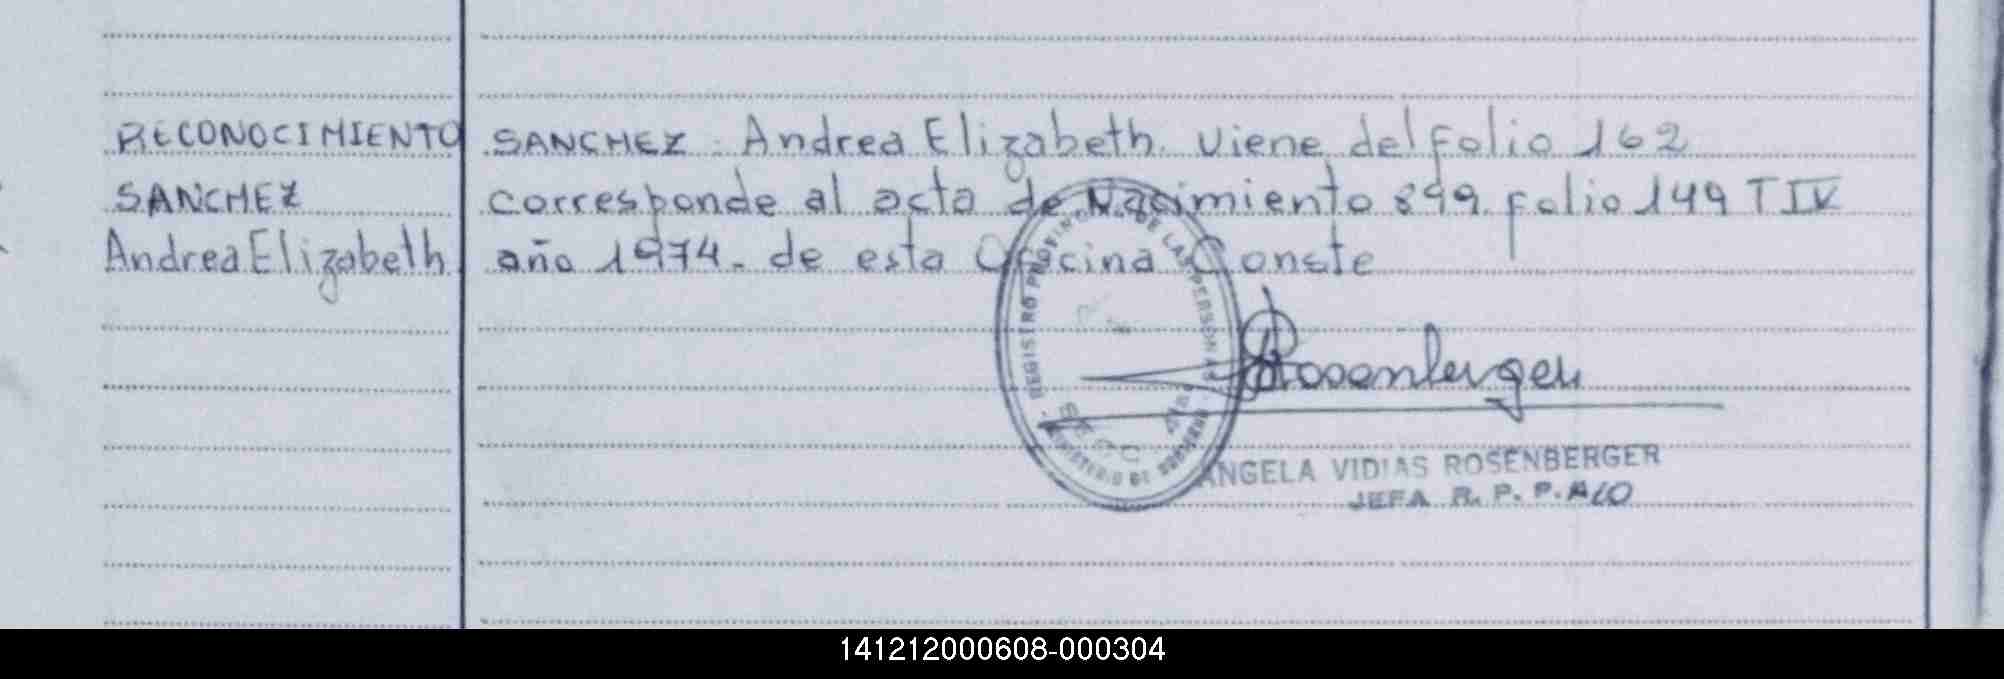 RECONOCIMIENTO
SANCHEZ
Andrea Elizabeth
SANCHEZ. Andrea Elizabeth. Viene del folio 162
corresponde al acta de Nacimiento 899. folio 149 T IV
año 1974. de esta Oficina Conste
REGISTRO PROVINCIAL DE LAS PERSONAS
MINISTERIO DE GOBIERNO
Rosenberger
ANGELA VIDIAS ROSENBERGER
JEFA R. P. P. ALO
141212000608-000304